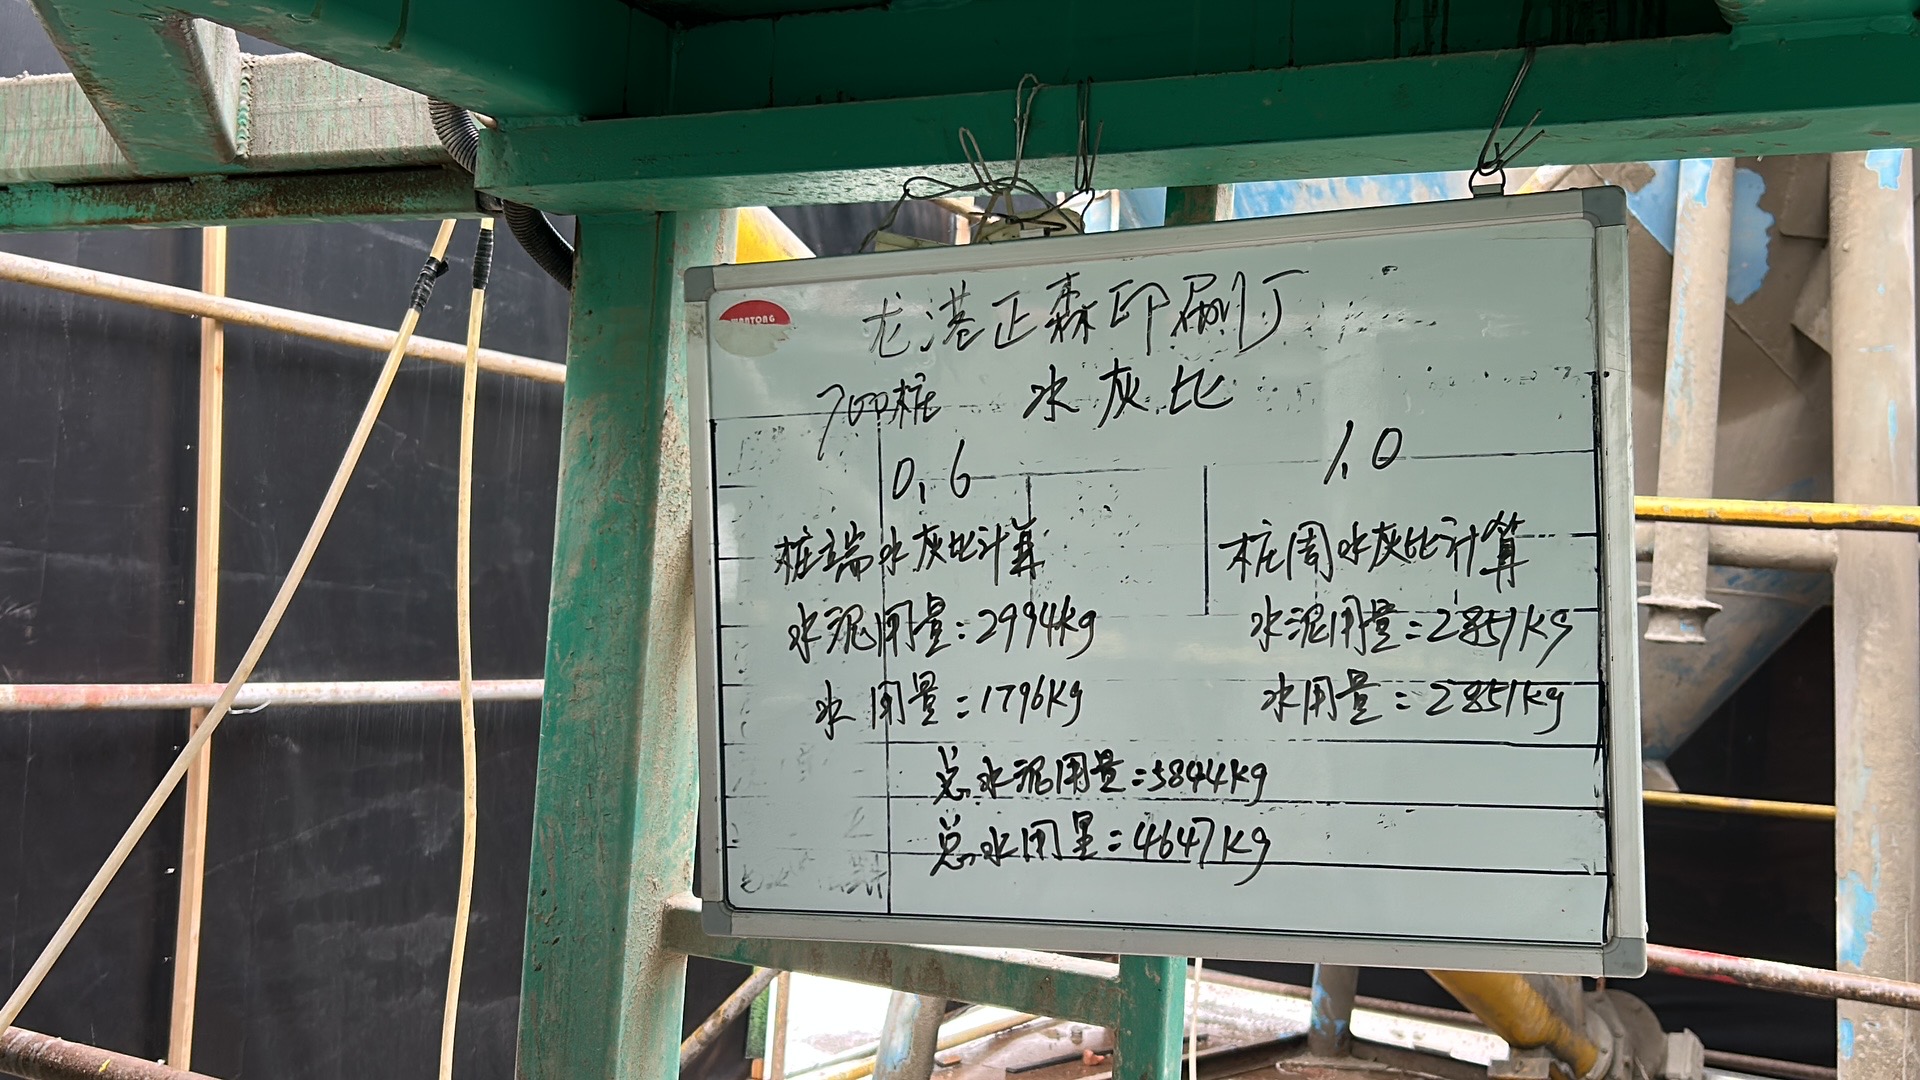 龙港正森印刷厂
700桩 水灰比
0.6 1.0
桩端水灰比计算 桩周水灰比计算
水泥用量:2994kg 水泥用量:2851kg
水用量:1796kg 水用量:2851kg
总水泥用量:5844kg
总水用量:4647kg